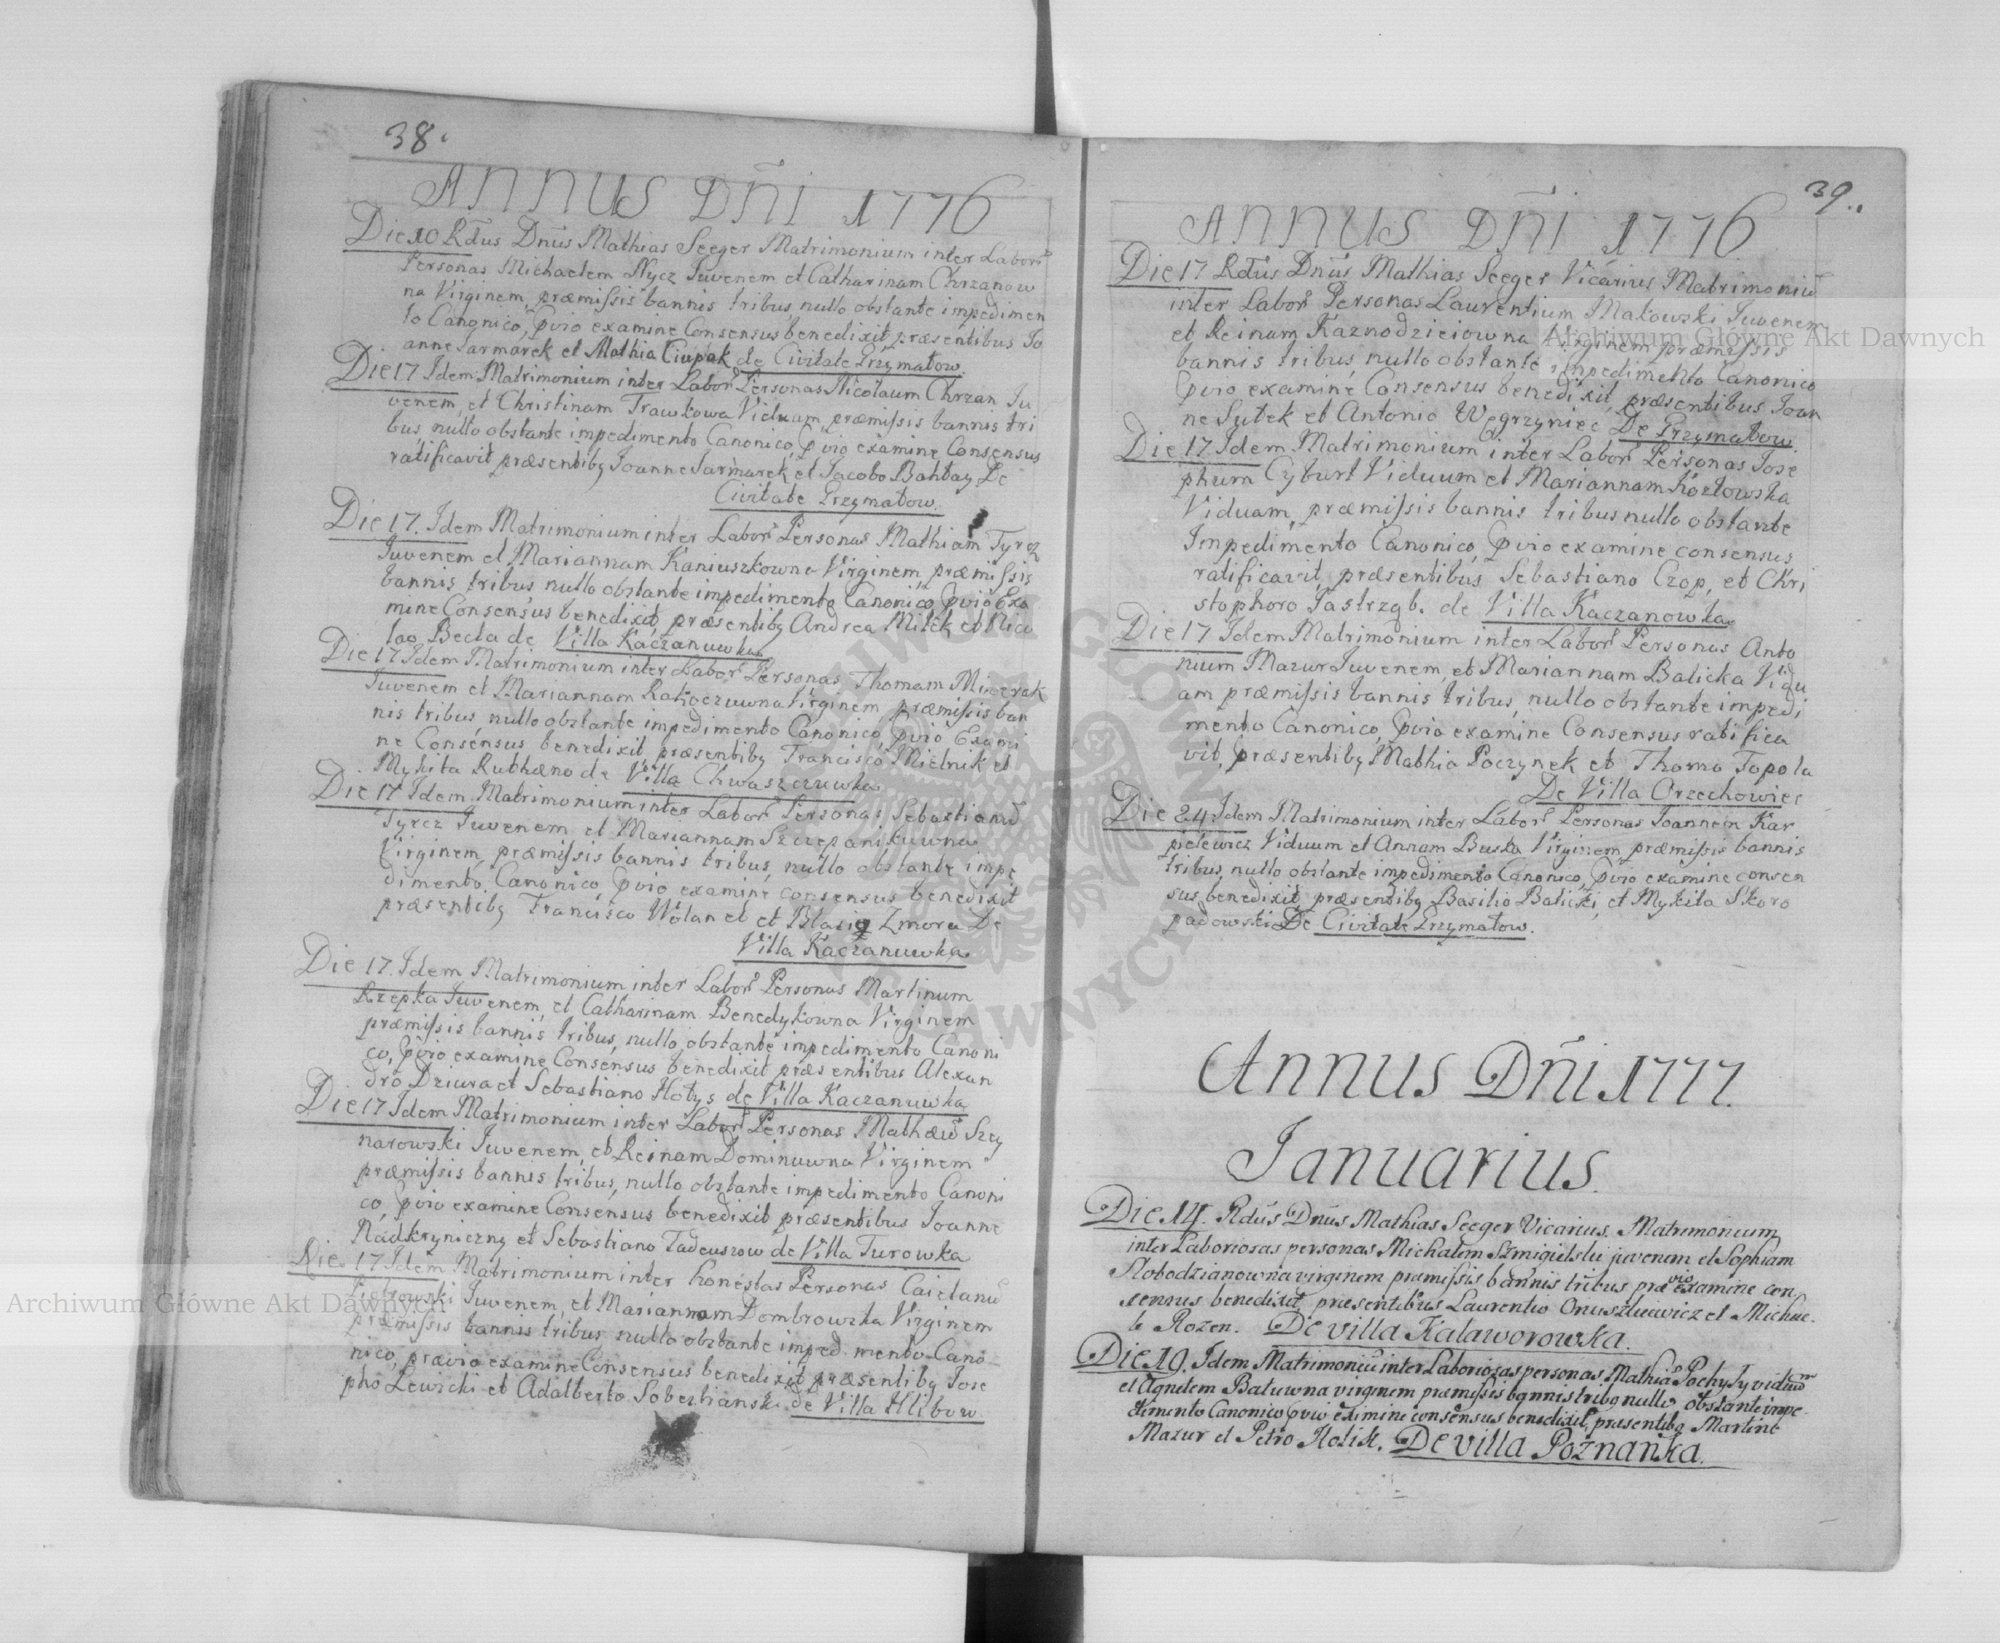 38.
ANNUS DÑI 1776
Die 10 Rdus Dnus Mathias Seeger Matrimonium inter Labor
Personas Michaelem Nycz Iuvenem et Catharinam Chrzanow
na Virginem, præmissis bannis tribus, nullo obstante impedimen
to Canonico, pvio examine Consensus benedixit præsentibus Jo
anne Jarmarek et Mathia Ciupak de Civitate Grzymatow.
Die 17 Idem Matrimonium inter Labor Personas Nicolaum Chrzan Iu
venem, et Christinam Trawkowa Viduam, præmissis bannis tri
bus, nullo obstante impedimento Canonico, pvio examine Consensus
ratificavit præsentibq Joanne Jarmarek et Jacobo Bahtay De
Civitate Grzymatow.
Die 17. Idem Matrimonium inter Labor Personas Mathiam Tyrcz
Iuvenem et Mariannam Kaniuszkowna Virginem præmissis
bannis tribus nullo obstante impedimento Canonico, pvio Exa
mine Consensus benedixit, præsentibq Andrea Milek et Nico
lao Becla de Villa Kaczanuwka
Die 17 Idem Matrimonium inter Labor Personas Thomam
Iuvenem et Mariannam Rakoczuwna Virginem præmissis ban
nis tribus nullo obstante impedimento Canonico pvio Exami
ne Consensus benedixit præsentibq Francisco Mielnik et
Mykita Ruthæno de Villa Chwaszczuwka
Die 17 Idem Matrimonium inter Labor Personas Sebastianu
Tyrcz Iuvenem et Mariannam Szczepanikuwna
Virginem, præmissis bannis tribus, nullo obstante impe
dimento, Canonico, pvio examine consensus benedixit
præsentibq Francisco Wolan et et Blasio Zmora De
Villa Kaczanuwka
Die 17. Idem Matrimonium inter Labor Personas Martinum
Rzepka Iuvenem, et Catharinam Benedykowna Virginem
præmissis bannis tribus, nullo obstante impedimento Canoni
co, pvio examine Consensus benedixit præsentibus Alexan
dro Dziura et Sebastiano Hotys de Villa Kaczanuwka
Die 17 Idem Matrimonium inter Labor Personas Mathæu Szcy
narowski Iuvenem, et Reinam Dominuwna Virginem
præmissis bannis tribus, nullo obstante impedimento Canoni
co, pvio examine Consensus benedixit præsentibus Joanne
Nadkryniczny et Sebastiano Tadeuszow de Villa Turowka
Die 17 Idem Matrimonium inter honestas Personas Caietanu
Pietrowski Iuvenem, et Mariannam Dombrowzka Virginem
præmissis bannis tribus nullo obstante imped mento Cano-
nico, prævio examine Consensus benedixit præsentibq Jose
pho Lewicki et Adalberto Sobestianski de Villa Hlibow.
39.
ANNUS DÑI 1776
Die 17 Rdus Dnus Mathias Seeger Vicarius Matrimoniu
inter Labor Personas Laurentium Makowski Iuvenem
et Reinam Kaznodzieiowna Virginem præmissis
bannis tribus, nullo obstante impedimento Canonico
pvio examine Consensus benedixit, præsentibus Joan
ne Sytek et Antonio Węgrzyniec De Grzymatow.
Die 17 Idem Matrimonium inter Labor Personas Jose
phum Cyburt Viduum et Mariannam Kozłowska
Viduam, præmissis bannis tribus nullo obstante
Impedimento Canonico, pvio examine consensus
ratificavit, præsentibus Sebastiano Czop, et Chri
stophoro Jastrzęb. de Villa Kaczanowka
Die 17 Idem Matrimonium inter Labor Personas Anto
nium Mazur Iuvenem, et Mariannam Balicka Vidu
am præmissis bannis tribus, nullo obstante impedi
mento Canonico, pvio examine Consensus ratifica
vit, præsentibq Mathia Poczynek et Thoma Topola
De Villa Orzechowiec
Die 24 Idem Matrimonium inter Labor Personas Joannem Kar
pielewicz Viduum et Annam Buska Virginem præmissis bannis
tribus, nullo obstante impedimento Canonico, pvio examine consen
sus benedixit, præsentibq Basilio Balicki, et Mykita Skoro
padowski De Civitate Grzymatow.
Annus Dñi 1777.
Ianuarius.
Die 14. Rdus Dnus Mathias Seeger Vicarius. Matrimonium
inter Laboriosas personas Michalem Szmigielski juvenem et Sophiam
Slobodzianowna virginem præmissis bannis tribus præ vio examine con
sensus benedixit, præsentibus Laurentio Onuszkiewicz et Michae
le Rozen. De villa Kalaworowka.
Die 19. Idem Matrimoniu inter Laboriosas personas Mathia Pochyły viduu
et Agnetem Batuwna virginem præmissis bannis tribq nullo obstante impe
dimento Canonico pvio eximine consensus benedixit, præsentibq Martino
Mazur et Petro Holik. De villa Poznanka.
Archiwum Główne Akt Dawnych
Archiwum Główne Akt Dawnych
ARCHIWUM GŁÓWNE AKT DAWNYCH